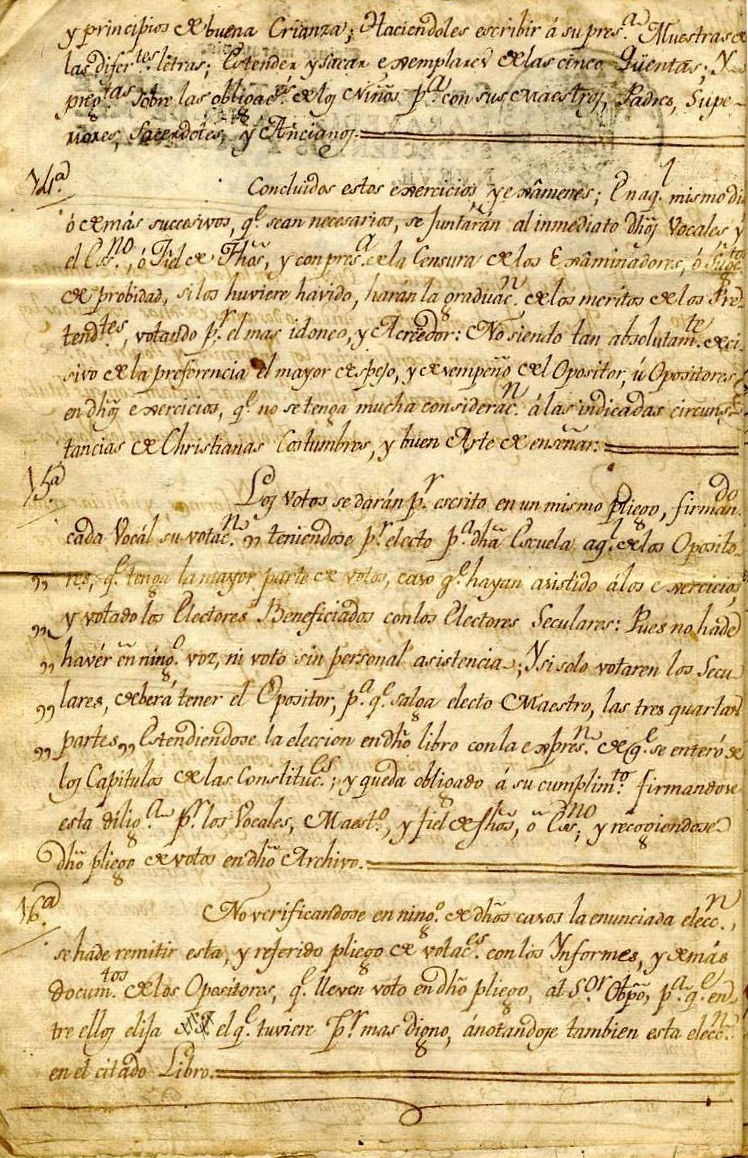 y principios de buena Crianza; Haciendoles escribir á su pres.ª Muestras de
las difer.tes letras; Estender y sacar exemplares de las cinco Qüentas; Y
preg.tas sobre las obligac.es de los Niños p.ª con sus Maestros, Padres, Supe-
riores, Sacerdotes, y Ancianos.
14.ª Concluidos estos exercicios, y exâmenes; En aq.l mismo dia
ó demás succesivos, q.e sean necesarios, se juntarán al inmediato dhos Vocales y
el Es.no, ó Fiel de Fhos, y con pres.ª de la Censura de los Examinadores, ó Suge.tos
de probidad, si los huviere havido, harán la graduac.n de los meritos de los Pre-
tend.tes, votando p.r el mas idoneo, y Acreedor: No siendo tan absolutam.te deci-
sivo de la preferencia el mayor despejo, y desempeño del Opositor, ú Opositores
en dhos exercicios, q.e no se tenga mucha considerac.n á las indicadas circuns-
tancias de Christianas Costumbres, y buen Arte de enseñar.
15.ª Los votos se darán p.r escrito en un mismo pliego, firman.do
cada Vocál su votac.n „ teniendose p.r electo p.ª dhã Escuela aq.l de los Oposito-
„ res, q.e tenga la mayor parte de votos, caso q.e hayan asistido á los exercicios,
„ y votado los Electores Beneficiados con los Electores Seculares: Pues no hade
„ havér en ning.º voz, ni voto sin personal asistencia; Y si solo votaren los Secu
„ lares, deberá tener el Opositor, p.ª q.e salga electo Maestro, las tres quartas
„ partes „ Estendiendose la eleccion en dhõ libro con la expres.n de q.e se enteró de
los Capitulos de las Constituc.es; y queda obligado á su cumplim.to firmandose
esta dilig.ª p.r los Vocales, Maest.º, y fiel de fhos, ó Es.no; y recogiendose
dhõ pliego de votos en dhõ Archivo.
16.ª No verificandose en ning.º de dhos casos la enunciada elecc.n,
se hade remitir esta, y referido pliego de votac.es con los Ynformes, y demás
docum.tos de los Opositores, q.e lleven voto en dhõ pliego, al S.or Obpõ, p.ª q.e en
tre ellos elija el q.e tuviere p.r mas digno, ánotandose tambien esta elecc.n
en el citado Libro.